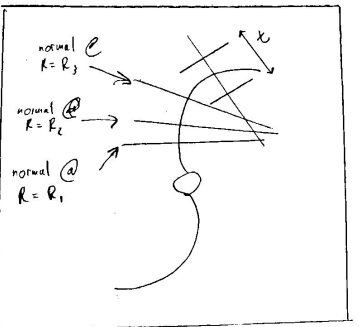 normal @
R = R₃
normal @
R = R₂
normal @
R = R₁
x